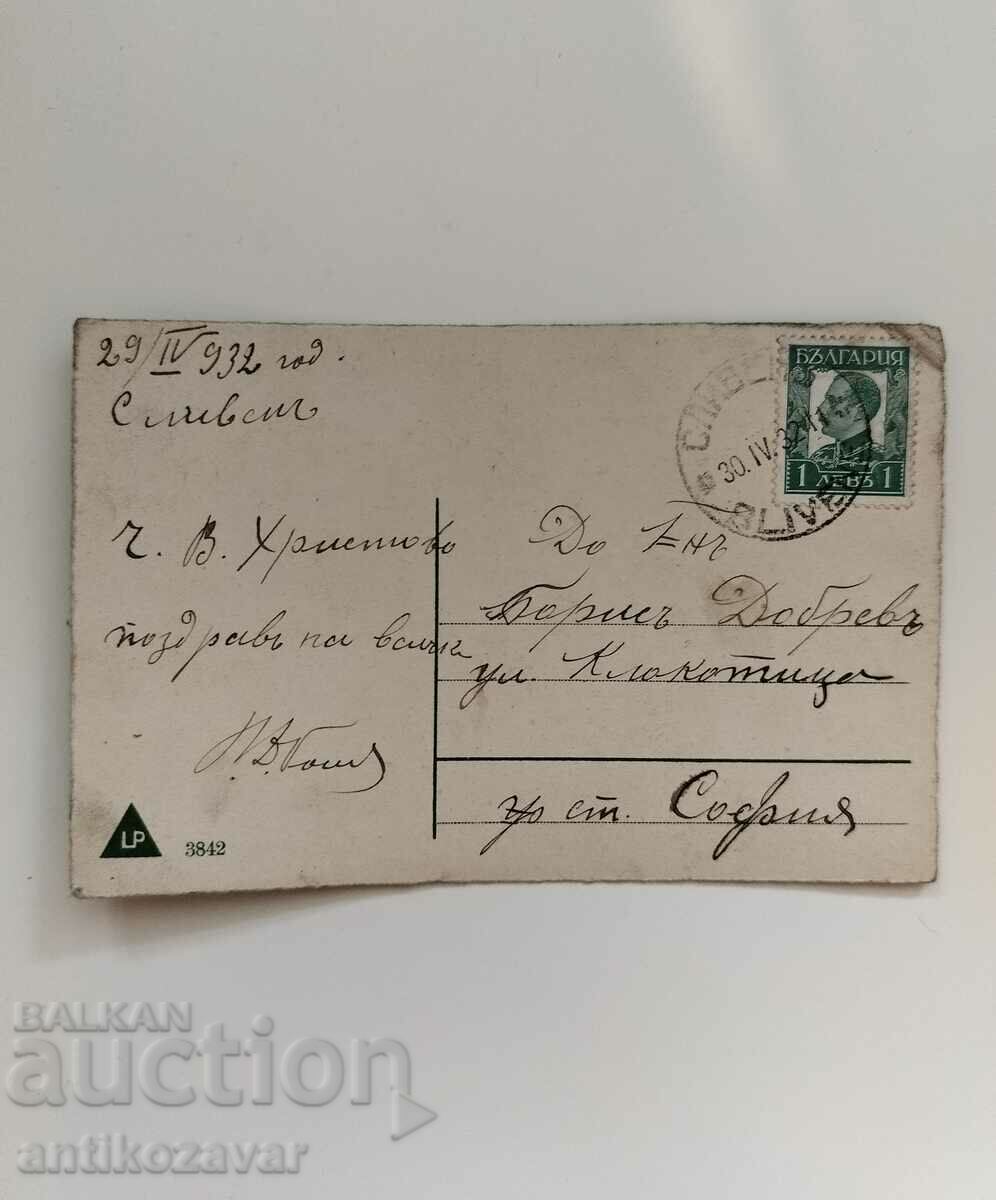 29/IV 932 год.
Сливенъ
Ч. В. Христово
поздравъ на всички
До Г-нъ
Борисъ Добревъ
ул. Клокотица
гр ст. София
БЪЛГАРИЯ
1 ЛЕВЪ 1
СЛИВЕНЪ
30.IV.32
SLIVEN
LP
3842
BALKAN
auction
antikozavar